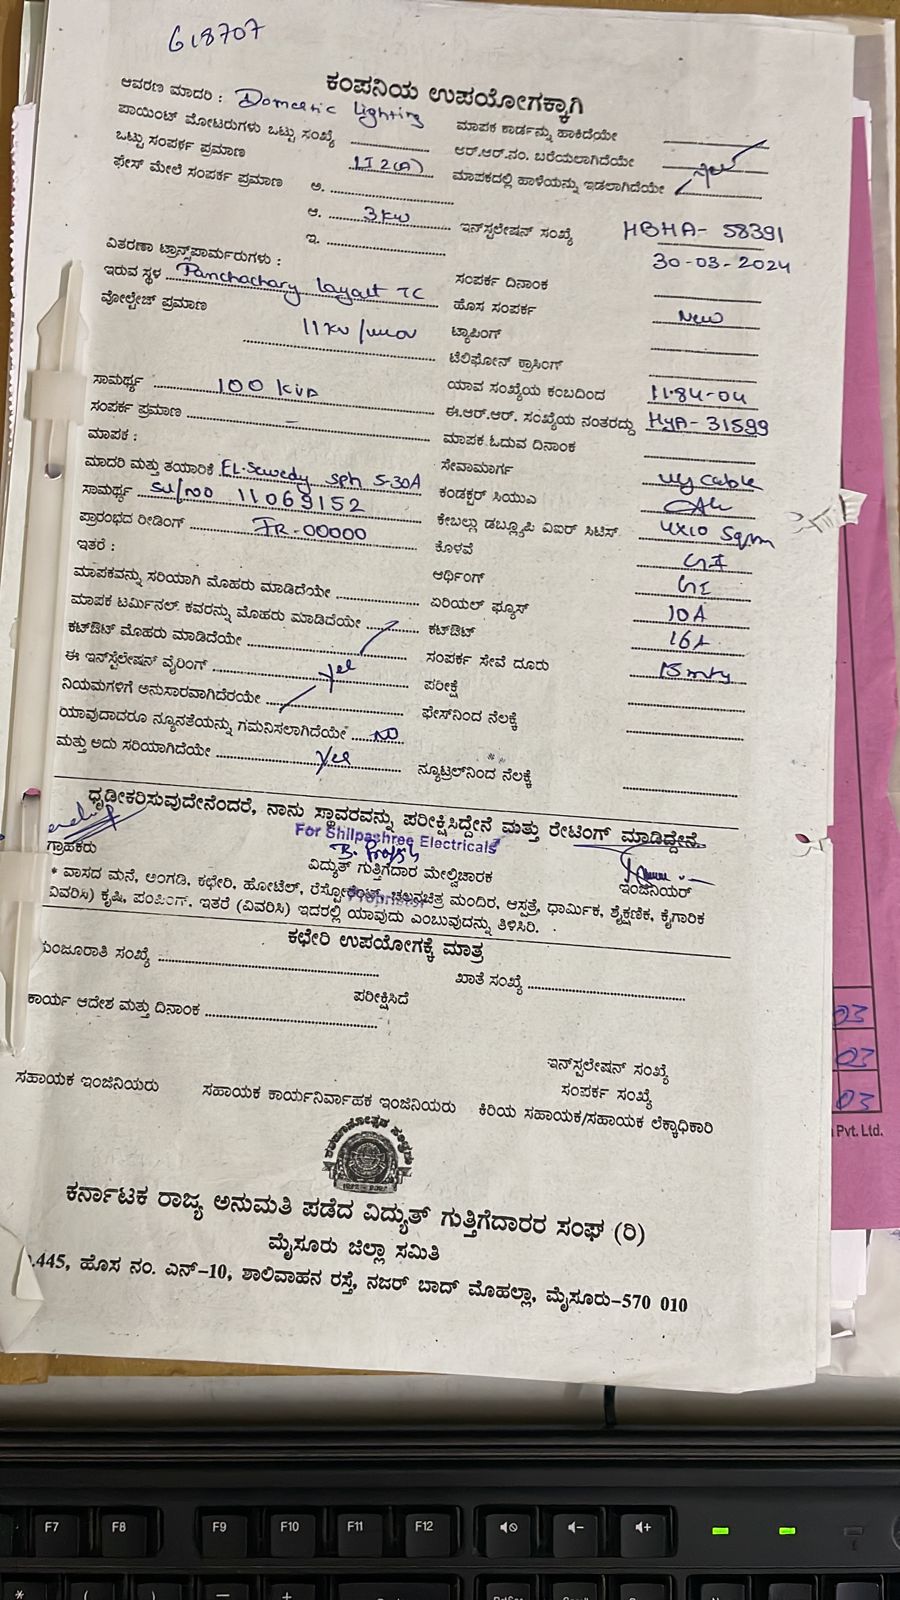 618707
ಕಂಪನಿಯ ಉಪಯೋಗಕ್ಕಾಗಿ
ಆವರಣ ಮಾದರಿ : Domestic Lighting
ಪಾಯಿಂಟ್ ಮೋಟರುಗಳು ಒಟ್ಟು ಸಂಖ್ಯೆ
ಒಟ್ಟು ಸಂಪರ್ಕ ಪ್ರಮಾಣ
ಫೇಸ್ ಮೇಲೆ ಸಂಪರ್ಕ ಪ್ರಮಾಣ ಅ.
ಆ. 3 KW
ಇ.
ವಿತರಣಾ ಟ್ರಾನ್ಸ್‌ಫಾರ್ಮರುಗಳು :
ಇರುವ ಸ್ಥಳ Panchachary Layout TC
ವೋಲ್ಟೇಜ್ ಪ್ರಮಾಣ
11 KV
ಸಾಮರ್ಥ್ಯ 100 KVA
ಸಂಪರ್ಕ ಪ್ರಮಾಣ –
ಮಾಪಕ :
ಮಾದರಿ ಮತ್ತು ತಯಾರಿಕೆ EL-Sewedy sph 5-30A
ಸಾಮರ್ಥ್ಯ 11069152
ಪ್ರಾರಂಭದ ರೀಡಿಂಗ್ IR-00000
ಇತರೆ :
ಮಾಪಕವನ್ನು ಸರಿಯಾಗಿ ಮೊಹರು ಮಾಡಿದೆಯೇ
ಮಾಪಕ ಟರ್ಮಿನಲ್ ಕವರನ್ನು ಮೊಹರು ಮಾಡಿದೆಯೇ
ಕಟ್‌ಔಟ್ ಮೊಹರು ಮಾಡಿದೆಯೇ
ಈ ಇನ್‌ಸ್ಟಲೇಷನ್ ವೈರಿಂಗ್ yes
ನಿಯಮಗಳಿಗೆ ಅನುಸಾರವಾಗಿದೆರಯೇ
ಯಾವುದಾದರೂ ನ್ಯೂನತೆಯನ್ನು ಗಮನಿಸಲಾಗಿದೆಯೇ NO
ಮತ್ತು ಅದು ಸರಿಯಾಗಿದೆಯೇ Yes
ಮಾಪಕ ಕಾರ್ಡನ್ನು ಹಾಕಿದೆಯೇ
ಆರ್.ಆರ್.ನಂ. ಬರೆಯಲಾಗಿದೆಯೇ
ಮಾಪಕದಲ್ಲಿ ಹಾಳೆಯನ್ನು ಇಡಲಾಗಿದೆಯೇ
ಇನ್‌ಸ್ಟಲೇಷನ್ ಸಂಖ್ಯೆ HBHA- 58391
30-03-2024
ಸಂಪರ್ಕ ದಿನಾಂಕ
ಹೊಸ ಸಂಪರ್ಕ New
ಟ್ಯಾಪಿಂಗ್
ಟೆಲಿಫೋನ್ ಕ್ರಾಸಿಂಗ್
ಯಾವ ಸಂಖ್ಯೆಯ ಕಂಬದಿಂದ 11-84-04
ಈ.ಆರ್.ಆರ್. ಸಂಖ್ಯೆಯ ನಂತರದ್ದು HyA- 31599
ಮಾಪಕ ಓದುವ ದಿನಾಂಕ
ಸೇವಾಮಾರ್ಗ cable
ಕಂಡಕ್ಟರ್ ಸಿಯುಎ
ಕೇಬಲ್ಲು ಡಬ್ಲ್ಯೂಪಿ ಏಐರ್ ಸಿಟಿಸ್ 4x10 Sqmm
ಕೊಳವೆ GI
ಅರ್ಥಿಂಗ್ GI
ಏರಿಯಲ್ ಫ್ಯೂಸ್ 10A
ಕಟ್‌ಔಟ್ 16A
ಸಂಪರ್ಕ ಸೇವೆ ದೂರು 15 mts
ಪರೀಕ್ಷೆ
ಫೇಸ್‌ನಿಂದ ನೆಲಕ್ಕೆ
ನ್ಯೂಟ್ರಲ್‌ನಿಂದ ನೆಲಕ್ಕೆ
ಧೃಡೀಕರಿಸುವುದೇನೆಂದರೆ, ನಾನು ಸ್ಥಾವರವನ್ನು ಪರೀಕ್ಷಿಸಿದ್ದೇನೆ ಮತ್ತು ರೇಟಿಂಗ್ ಮಾಡಿದ್ದೇನೆ.
For Shilpashree Electricals
ಗ್ರಾಹಕರು ವಿದ್ಯುತ್ ಗುತ್ತಿಗೆದಾರ ಮೇಲ್ವಿಚಾರಕ ಇಂಜಿನಿಯರ್
Proprietor
* ವಾಸದ ಮನೆ, ಅಂಗಡಿ, ಕಛೇರಿ, ಹೋಟೆಲ್, ರೆಸ್ಟೋರೆಂಟ್, ಚಲನಚಿತ್ರ ಮಂದಿರ, ಆಸ್ಪತ್ರೆ, ಧಾರ್ಮಿಕ, ಶೈಕ್ಷಣಿಕ, ಕೈಗಾರಿಕ
ವಿವರಿಸಿ) ಕೃಷಿ, ಪಂಪಿಂಗ್, ಇತರೆ (ವಿವರಿಸಿ) ಇದರಲ್ಲಿ ಯಾವುದು ಎಂಬುವುದನ್ನು ತಿಳಿಸಿರಿ.
ಕಛೇರಿ ಉಪಯೋಗಕ್ಕೆ ಮಾತ್ರ
ಮಂಜೂರಾತಿ ಸಂಖ್ಯೆ ಖಾತೆ ಸಂಖ್ಯೆ
ಪರೀಕ್ಷಿಸಿದೆ
ಕಾರ್ಯ ಆದೇಶ ಮತ್ತು ದಿನಾಂಕ
ಇನ್‌ಸ್ಟಲೇಷನ್ ಸಂಖ್ಯೆ
ಸಂಪರ್ಕ ಸಂಖ್ಯೆ
ಸಹಾಯಕ ಇಂಜಿನಿಯರು ಸಹಾಯಕ ಕಾರ್ಯನಿರ್ವಾಹಕ ಇಂಜಿನಿಯರು ಕಿರಿಯ ಸಹಾಯಕ/ಸಹಾಯಕ ಲೆಕ್ಕಾಧಿಕಾರಿ
ಕರ್ನಾಟಕ ರಾಜ್ಯ ಅನುಮತಿ ಪಡೆದ ವಿದ್ಯುತ್ ಗುತ್ತಿಗೆದಾರರ ಸಂಘ (ರಿ)
ಮೈಸೂರು ಜಿಲ್ಲಾ ಸಮಿತಿ
.445, ಹೊಸ ನಂ. ಎನ್-10, ಶಾಲಿವಾಹನ ರಸ್ತೆ, ನಜರ್ ಬಾದ್ ಮೊಹಲ್ಲಾ, ಮೈಸೂರು-570 010
03
03
03
Pvt. Ltd.
F7 F8 F9 F10 F11 F12